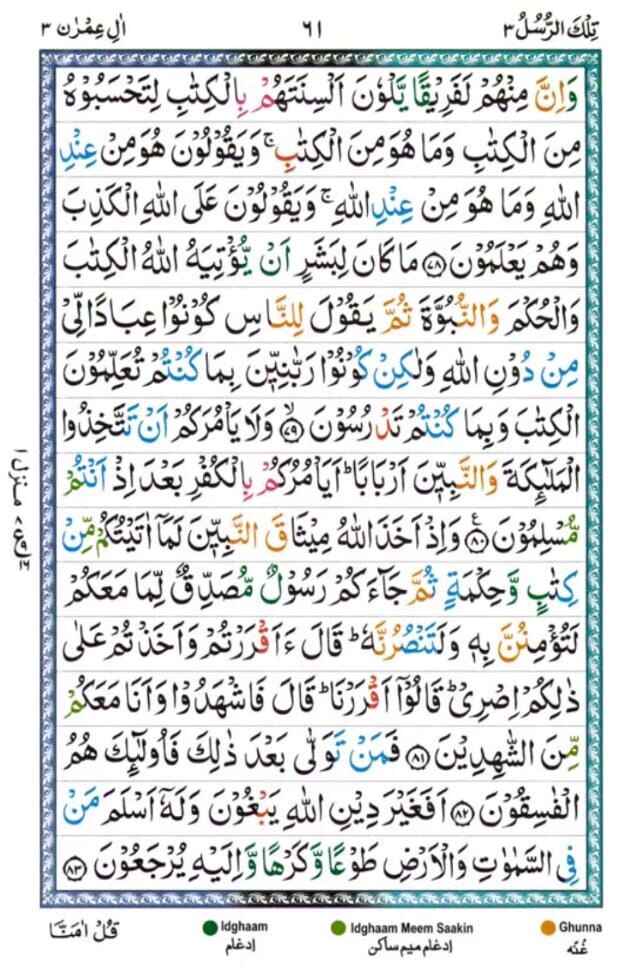 تِلْكَ الرُّسُلُ ٣ ٦١ اٰلِ عِمْرٰن ٣
وَاِنَّ مِنْهُمْ لَفَرِيْقًا يَّلْوٗنَ اَلْسِنَتَهُمْ بِالْكِتٰبِ لِتَحْسَبُوْهُ
مِنَ الْكِتٰبِ وَمَا هُوَ مِنَ الْكِتٰبِ ۚ وَيَقُوْلُوْنَ هُوَ مِنْ عِنْدِ
اللّٰهِ وَمَا هُوَ مِنْ عِنْدِ اللّٰهِ ۚ وَيَقُوْلُوْنَ عَلَى اللّٰهِ الْكَذِبَ
وَهُمْ يَعْلَمُوْنَ ﴿٧٨﴾ مَا كَانَ لِبَشَرٍ اَنْ يُّؤْتِيَهُ اللّٰهُ الْكِتٰبَ
وَالْحُكْمَ وَالنُّبُوَّةَ ثُمَّ يَقُوْلَ لِلنَّاسِ كُوْنُوْا عِبَادًا لِّيْ
مِنْ دُوْنِ اللّٰهِ وَلٰكِنْ كُوْنُوْا رَبّٰنِيّٖنَ بِمَا كُنْتُمْ تُعَلِّمُوْنَ
الْكِتٰبَ وَبِمَا كُنْتُمْ تَدْرُسُوْنَ ﴿٧٩﴾ۙ وَلَا يَاْمُرَكُمْ اَنْ تَتَّخِذُوا
الْمَلٰٓئِكَةَ وَالنَّبِيّٖنَ اَرْبَابًا ؕ اَيَاْمُرُكُمْ بِالْكُفْرِ بَعْدَ اِذْ اَنْتُمْ
مُّسْلِمُوْنَ ﴿٨٠﴾ وَاِذْ اَخَذَ اللّٰهُ مِيْثَاقَ النَّبِيّٖنَ لَمَاۤ اٰتَيْتُكُمْ مِّنْ
كِتٰبٍ وَّحِكْمَةٍ ثُمَّ جَآءَكُمْ رَسُوْلٌ مُّصَدِّقٌ لِّمَا مَعَكُمْ
لَتُؤْمِنُنَّ بِهٖ وَلَتَنْصُرُنَّهٗ ؕ قَالَ ءَاَقْرَرْتُمْ وَاَخَذْتُمْ عَلٰى
ذٰلِكُمْ اِصْرِيْ ؕ قَالُوْۤا اَقْرَرْنَا ؕ قَالَ فَاشْهَدُوْا وَاَنَا مَعَكُمْ
مِّنَ الشّٰهِدِيْنَ ﴿٨١﴾ فَمَنْ تَوَلّٰى بَعْدَ ذٰلِكَ فَاُولٰٓئِكَ هُمُ
الْفٰسِقُوْنَ ﴿٨٢﴾ اَفَغَيْرَ دِيْنِ اللّٰهِ يَبْغُوْنَ وَلَهٗۤ اَسْلَمَ مَنْ
فِي السَّمٰوٰتِ وَالْاَرْضِ طَوْعًا وَّكَرْهًا وَّاِلَيْهِ يُرْجَعُوْنَ ﴿٨٣﴾
منزل ١
قُلْ اٰمَنَّا
Idghaam Idghaam Meem Saakin Ghunna
إدغام إدغام ميم ساكن غُنّه